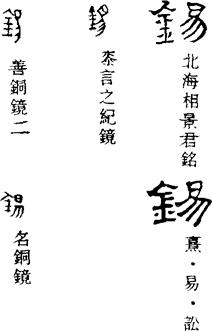 錫
北海相景君銘
錫
熹・易・訟
錫
桼言之紀鏡
錫
善銅鏡二
錫
名銅鏡